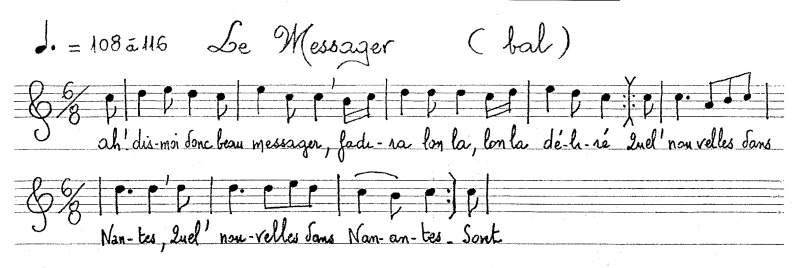 ♩. = 108 à 116 Le Messager ( bal )
6/8
ah! dis-moi donc beau messager, fadi-ra lon la, lon la dé-li-ré Quel' nouvelles dans
6/8
Nan-tes, Quel' nou-velles dans Nan-an-tes. Sont